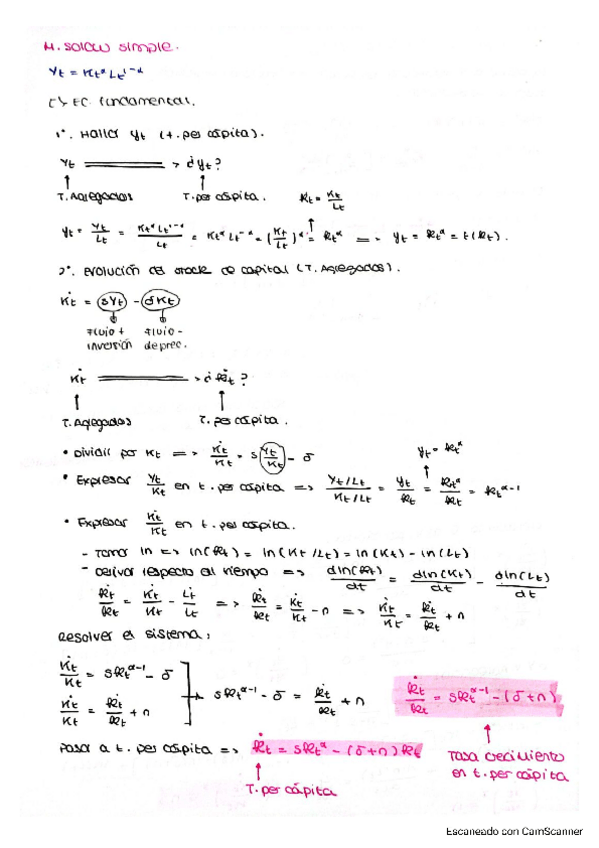 M. Solow simple.
Yt = Kt^α Lt^1-α
EC. fundamental.
1º. Hallar yt (t. per cápita).
Yt ⟹ ¿yt?
T. Agregados T. per cápita. kt = Kt/Lt
yt = Yt/Lt = Kt^α Lt^1-α / Lt = Kt^α Lt^-α = (Kt/Lt)^α = kt^α => yt = kt^α = f(kt).
2º. Evolución del stock de capital (T. Agregados).
K̇t = sYt - δKt
Flujo + Flujo -
inversión deprec.
K̇t ⟹ ¿k̇t?
T. Agregados T. per cápita.
• Dividir por Kt => K̇t/Kt = s Yt/Kt - δ yt = kt^α
• Expresar Yt/Kt en t. per cápita => Yt/Lt / Kt/Lt = yt/kt = kt^α/kt = kt^α-1
• Expresar K̇t/Kt en t. per cápita.
- Tomar ln => ln(kt) = ln(Kt/Lt) = ln(Kt) - ln(Lt)
- Derivar respecto al tiempo => dln(kt)/dt = dln(Kt)/dt - dln(Lt)/dt
k̇t/kt = K̇t/Kt - L̇t/Lt => k̇t/kt = K̇t/Kt - n => K̇t/Kt = k̇t/kt + n
Resolver el sistema:
K̇t/Kt = skt^α-1 - δ
K̇t/Kt = k̇t/kt + n
skt^α-1 - δ = k̇t/kt + n
k̇t/kt = skt^α-1 - (δ+n)
Pasar a t. per cápita => k̇t = skt^α - (δ+n)kt
Tasa crecimiento
en t. per cápita
T. per cápita
Escaneado con CamScanner